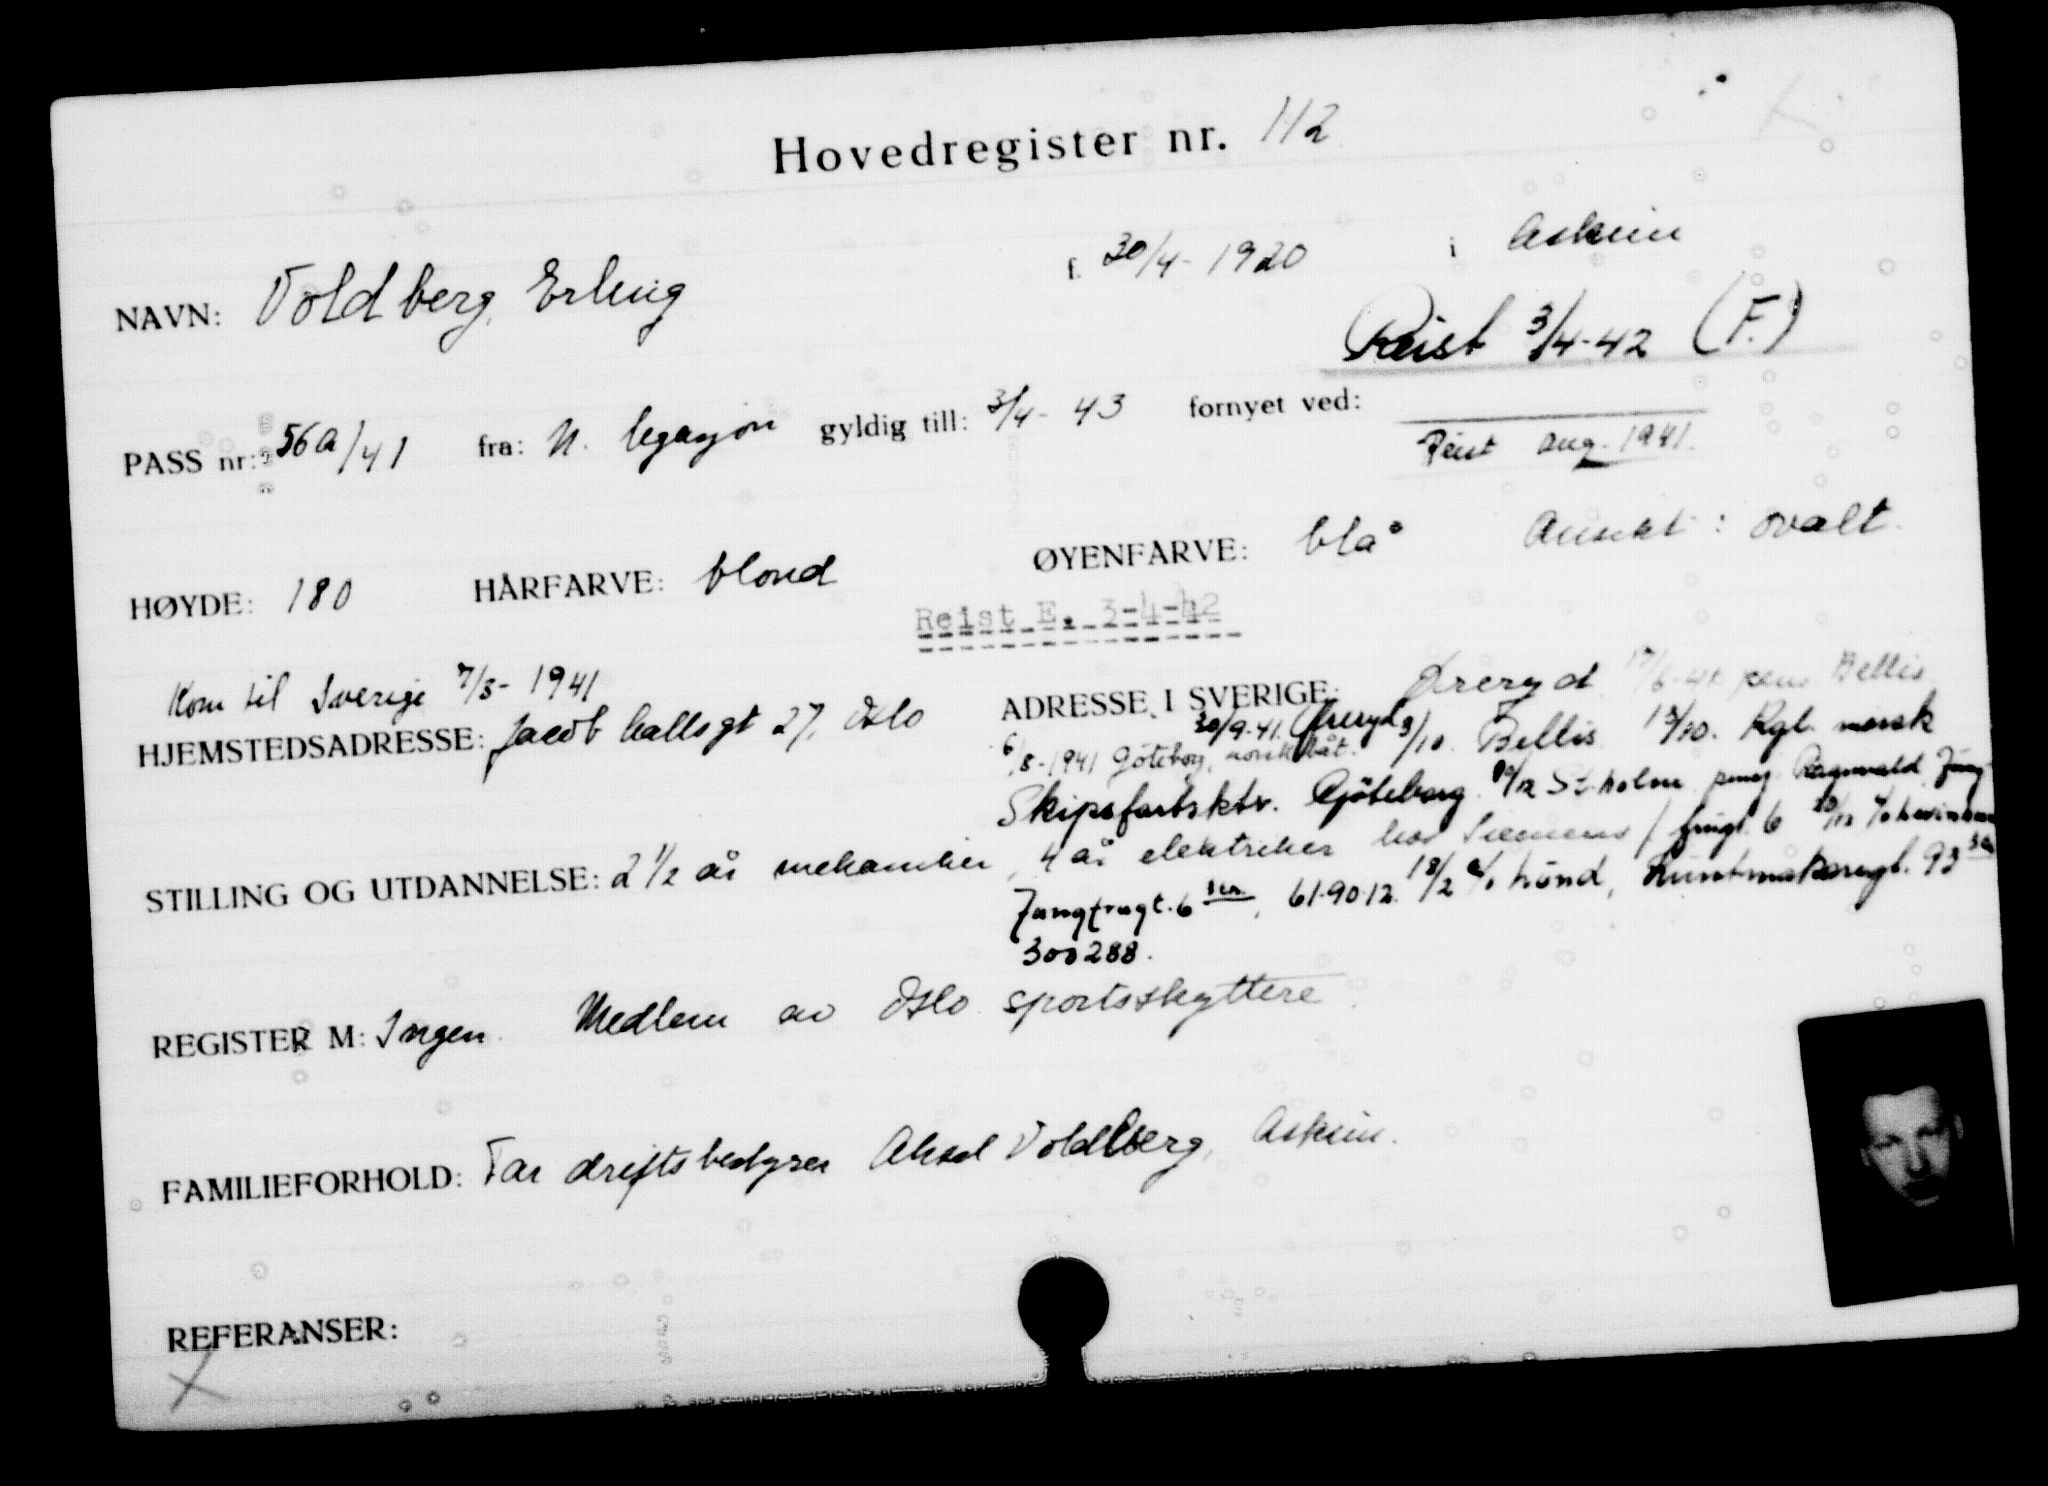 Hovedregister nr. 112
NAVN: Voldberg, Erling f. 30/4-1920 i Askim
Reist 3/4-42 (F.)
PASS nr: 56a/41 fra: N. legasjon gyldig till: 3/4-43 fornyet ved:
Reist aug. 1941.
HØYDE: 180 HÅRFARVE: blond ØYENFARVE: blå Ansikt: ovalt.
Reist E. 3-4-42
Kom til Sverige 7/3-1941
HJEMSTEDSADRESSE: Jacob Hallsgt 27, Oslo
ADRESSE I SVERIGE: Øreryd 17/6-41 pens Bellis
30/9-41. Øreryd 3/10. Bellis 13/10. Kgl. norsk
6/8-1941 Göteborg, norsk båt.
Skipsfartsktr. Göteborg. St.holm pens. Ragnvald, Jung-
frugt. 6
STILLING OG UTDANNELSE: 2 1/2 år mekaniker, 4 år elektriker hos Siemens
Jungfrugt. 6, 61.90.12. 18/2 c/o Lönd, 93
300288.
REGISTER M: Ingen. Medlem av Oslo sportsskyttere.
FAMILIEFORHOLD: Far driftsbestyrer Aksel Voldberg, Askim.
REFERANSER:
X